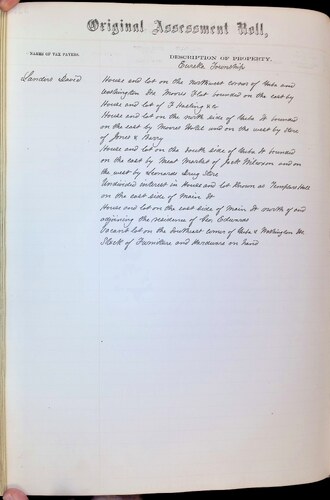 Original Assessment Roll,
NAMES OF TAX PAYERS.
DESCRIPTION OF PROPERTY.
Eureka Township
Sanders David
House and lot on the northwest corner of Gaba and
Washington Sts Moores Flat bounded on the east by
House and lot of F Hasling & Co
House and lot on the north side of Gaba St bounded
on the east by Moores Hotel and on the west by store
of Jones & Barry
House and lot on the south side of Gaba St bounded
on the east by Meat Market of Jack Wilcoxon and on
the west by Leonards Drug Store
Undivided interest in House and lot known as Templars Hall
on the east side of Main St
House and lot on the east side of Main St north of and
adjoining the residence of Geo Edwards
Vacant lot on the Southeast corner of Gaba & Washington Sts
Stock of Furniture and Hardware on hand